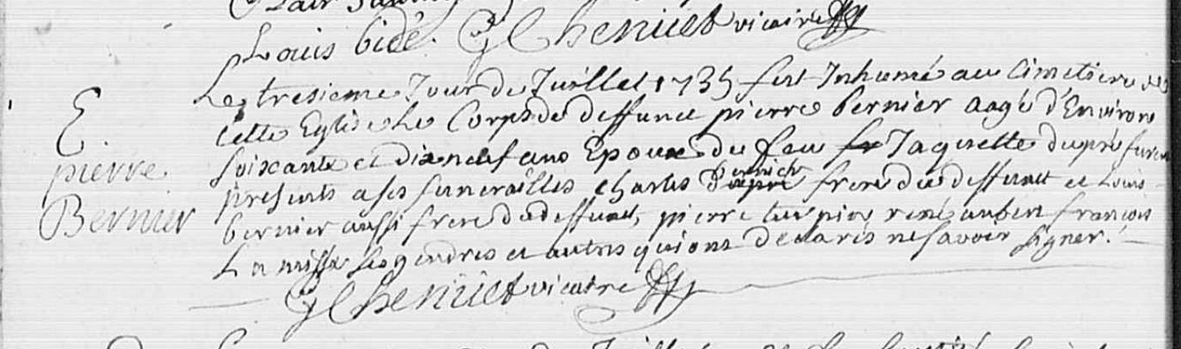 Louis bidé. G Cheniüet vicaire
Le tresieme Jour de Juillet 1735 fut Inhumé au Cimetiere de
cette Eglise le Corps de deffunct pierre bernier aagé d'Environ
E
soixante et dix neuf ans Epoux du feu Jaquette dupré furent
pierre
presents a ses funerailles charles bernier frere du deffunct et Louis
Bernier
bernier aussi frere du deffunct, pierre turpin, rené aubert francois
ses gendres et autres qui ont déclarés ne savoir signer.
G Cheniüet vicaire